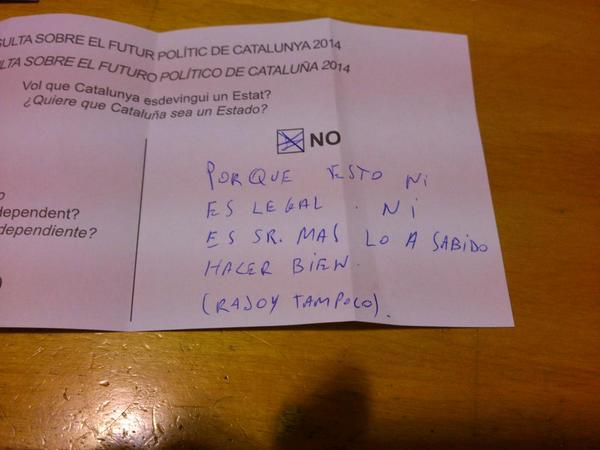 SULTA SOBRE EL FUTUR POLÍTIC DE CATALUNYA 2014
LTA SOBRE EL FUTURO POLÍTICO DE CATALUÑA 2014
Vol que Catalunya esdevingui un Estat?
¿Quiere que Cataluña sea un Estado?
NO
PORQUE ESTO Ni
ES LEGAL. Ni
ES SR. MAS LO A SABIDO
HACER BIEN.
(RAJOY TAMPOCO).
o
dependent?
dependiente?
)